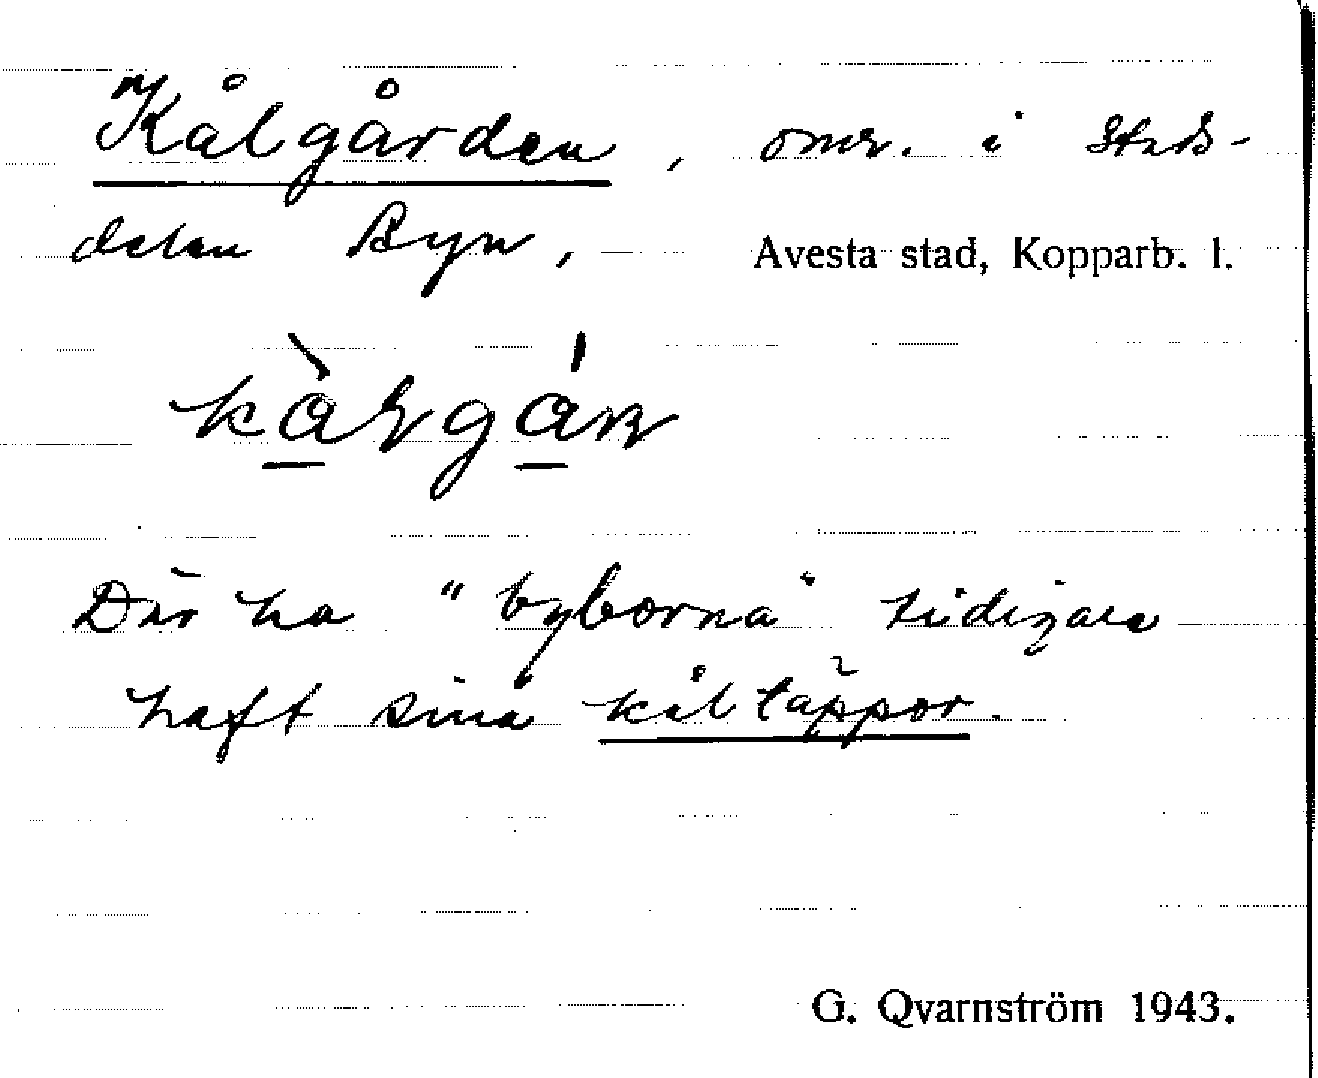 Kålgården, omr. i Stads-
delen Byn, Avesta stad, Kopparb. l.
Där ha "byborna" tidigare
haft sina kåltäppor.
G. Qvarnström 1943.